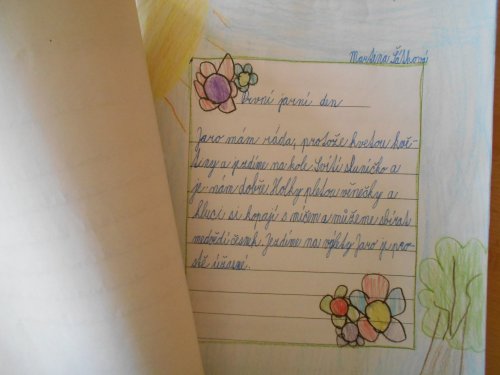 Martina
První jarní den
Jaro mám ráda, protože kvetou kvě-
tiny a jezdíme na kole. Svítí sluníčko a
je nám dobře. Holky pletou věnečky a
kluci si kopají s míčem a můžeme sbírat
medvědí česnek. Jezdíme na výlety. Jaro je pro-
stě úžasné.